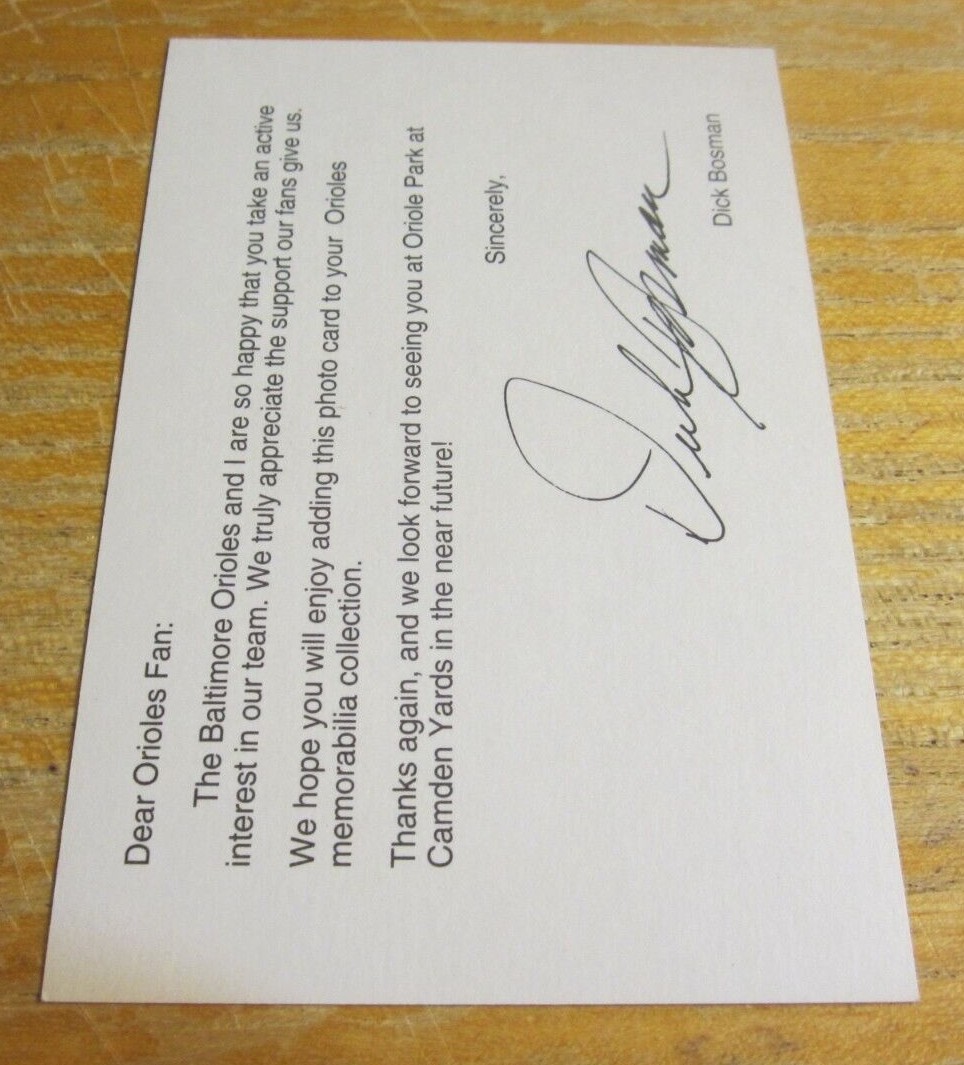 Dear Orioles Fan:
The Baltimore Orioles and I are so happy that you take an active
interest in our team. We truly appreciate the support our fans give us.
We hope you will enjoy adding this photo card to your Orioles
memorabilia collection.
Thanks again, and we look forward to seeing you at Oriole Park at
Camden Yards in the near future!
Sincerely,
Dick Bosman
Dick Bosman